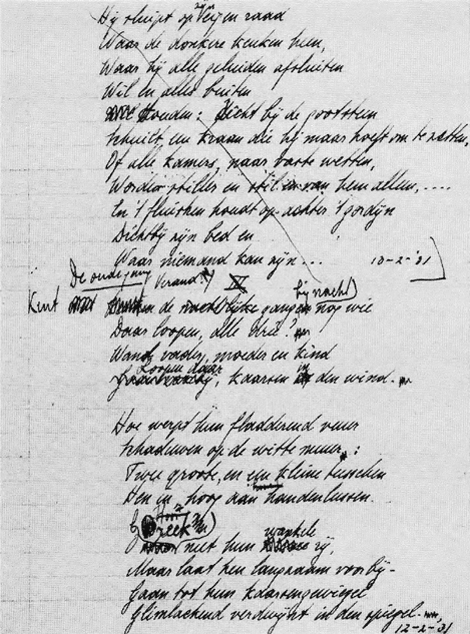 Hij sluipt op zijn eigen raad
Waar de donkere keuken heen,
Waar hij alle geluiden afsluiten
Wil en alles buiten
Houden: dicht bij de gootsteen
Schuilt, een kraan die hij maar hoeft om te zetten,
Of alle kamers, naar vaste wetten,
Worden stiller en stil in van hem allen, ....
En 't fluisteren houdt op achter 't gordijn
Dichtbij zijn bed en
Waar niemand kan zijn ... 10-2-'31
De oude
Veranda
IV
Kent de gangen bij nacht nog wie
Daar loopen, alle drie?
Want vader, moeder en kind
Loopen daar, kaarsen in den wind.
Hoe werpt hun fladderend vuur
Schaduwen op de witte muur:
Twee groote, en een kleine tusschen
Hen in, hoog aan handen
Breek
niet hun wankele rij,
Maar laat hen langzaam voorbij-
Gaan tot hun kaarsengewiegel
Glimlachend verdwijnt in den spiegel.
12-2-31